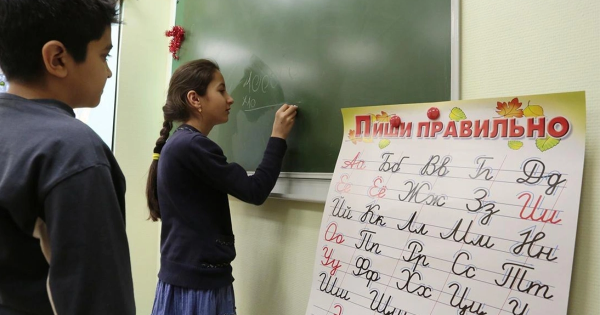 Пиши правильно
Аа Бб Вв Гг Дд
Ее Ёё Жж Зз Ии
Йй Кк Лл Мм Нн
Оо Пп Рр Сс Тт
Уу Фф Хх Цц Ч
Шш Щщ